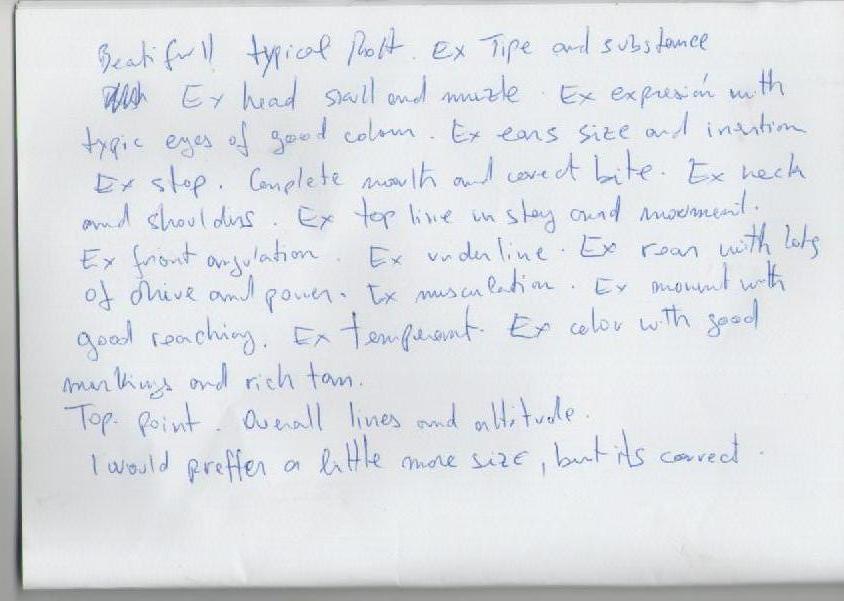 Beatifull typical Rott. Ex Tipe and substance
Ex head skull and muzzle. Ex expresión with
typic eyes of good colour. Ex ears size and insertion
Ex stop. Complete mouth and correct bite. Ex neck
and shoulders. Ex top line in stay and movment.
Ex front angulation. Ex underline. Ex rear with lots
of drive and power. Ex musculation. Ex movment with
good reaching. Ex temperamt. Ex color with good
markings and rich tan.
Top. point. Overall lines and attitude.
I would preffer a little more size, but its correct.